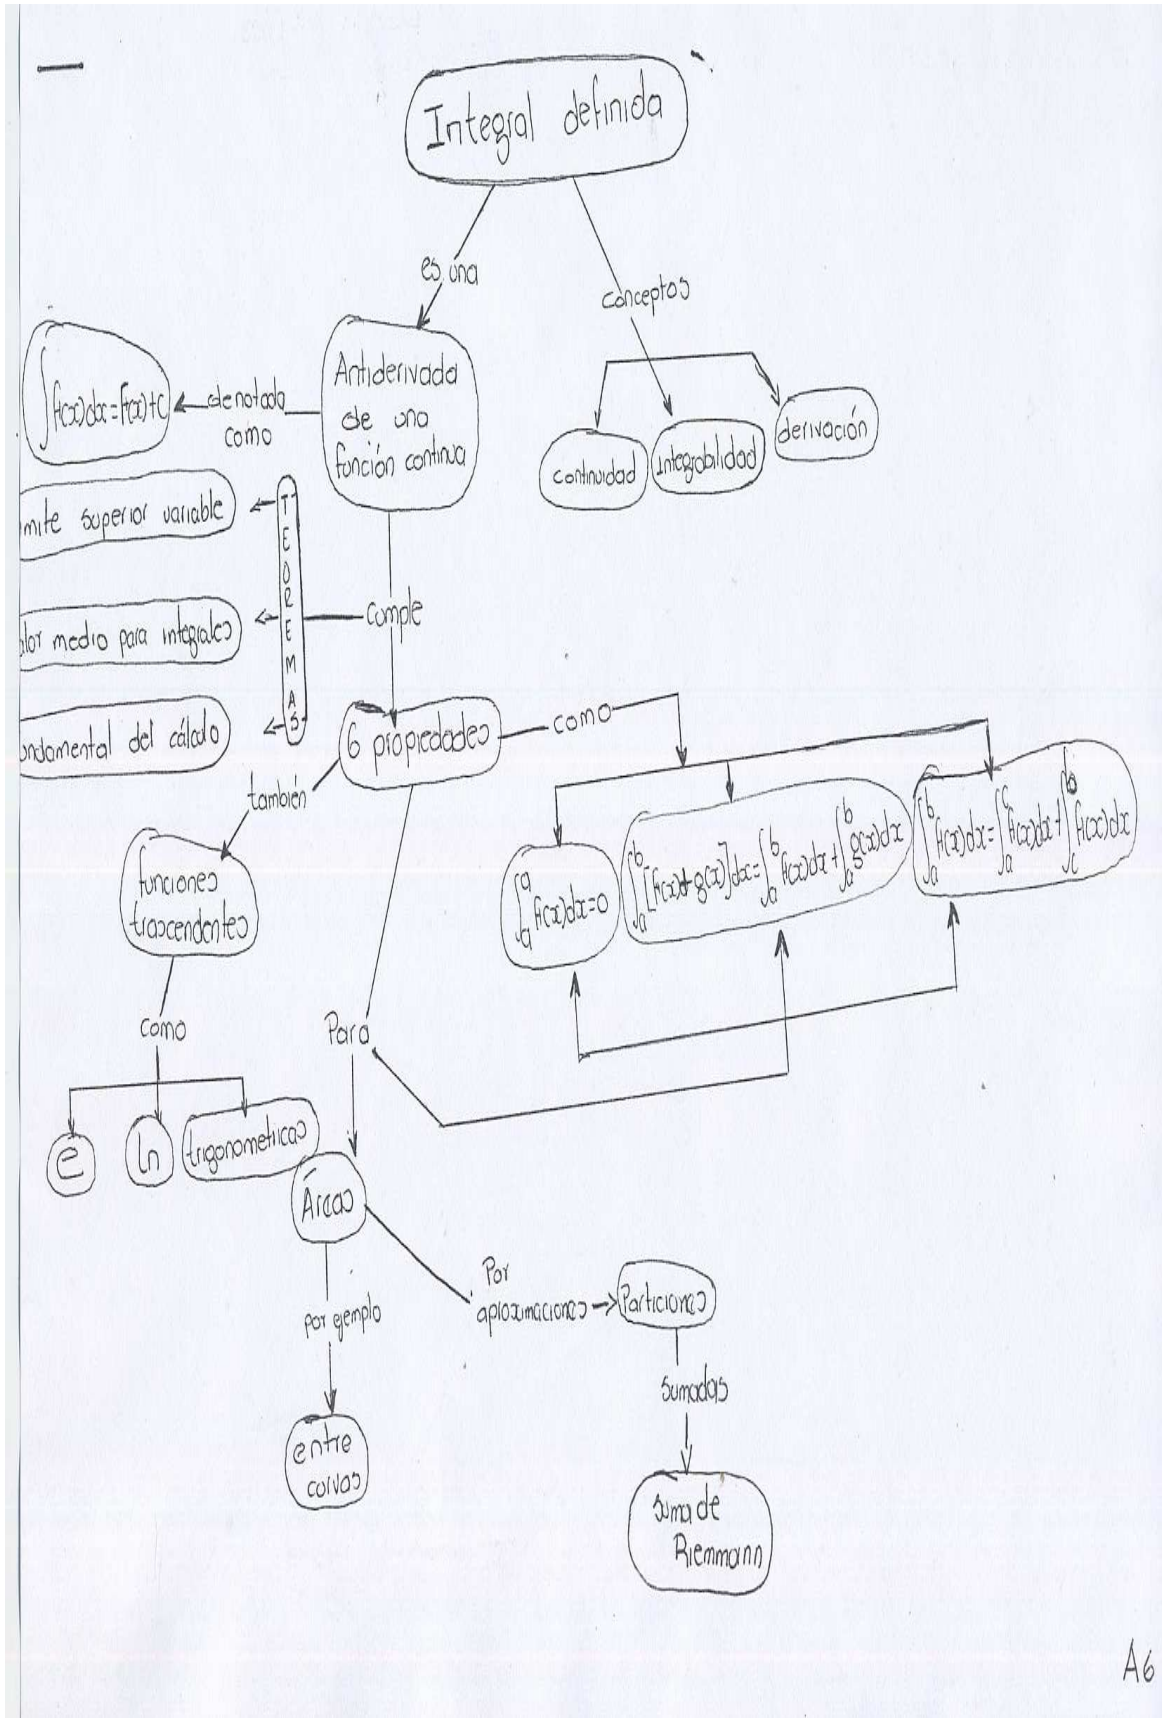 Integral definida
es una
conceptos
Antiderivada
de una
función continua
denotada
como
∫f(x)dx=f(x)+C
continuidad
Integrabilidad
derivación
TEOREMAS
mite superior variable
alor medio para integrales
undamental del cálculo
cumple
6 propiedades
como
∫ₐᵃ f(x)dx=0
∫ₐᵇ[f(x)+g(x)]dx=∫ₐᵇ f(x)dx+∫ₐᵇ g(x)dx
∫ₐᵇ f(x)dx=∫ₐᶜ f(x)dx+∫꜀ᵇ f(x)dx
también
funciones
trascendentes
como
e
ln
trigonometricas
Para
Áreas
por ejemplo
entre
curvas
Por
aproximaciones
Particiones
Sumadas
suma de
Riemmann
A6